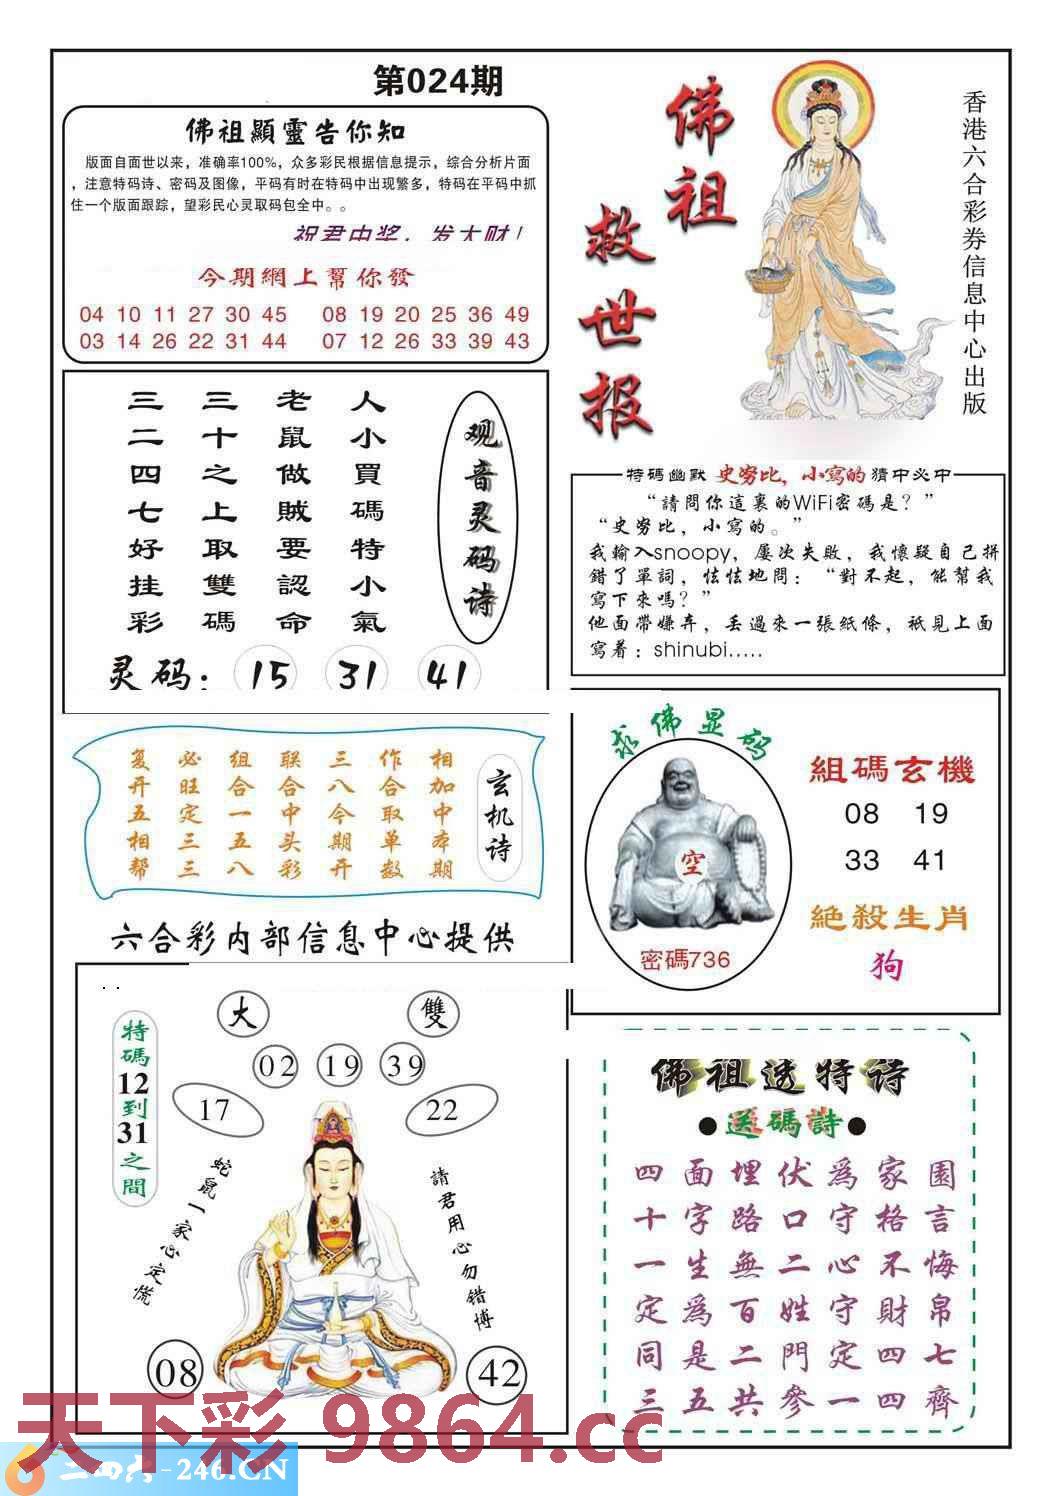 第024期
佛祖顯靈告你知
版面自面世以来，准确率100%，众多彩民根据信息提示，综合分析片面
，注意特码诗、密码及图像，平码有时在特码中出现繁多，特码在平码中抓
住一个版面跟踪，望彩民心灵取码包全中。。
祝君中奖，发大财！
今期網上幫你發
04 10 11 27 30 45 08 19 20 25 36 49
03 14 26 22 31 44 07 12 26 33 39 43
佛祖
救世报
香港六合彩券信息中心出版
观音灵码诗
人小買碼特小氣
老鼠做賊要認命
三十之上取雙碼
三二四七好挂彩
灵码：15 31 41
特碼幽默 史努比，小寫的 猜中必中
“請問你這裏的WiFi密碼是？”
“史努比，小寫的。”
我輸入snoopy，屢次失敗，我懷疑自己拼
錯了單詞，怯怯地問：“對不起，能幫我
寫下來嗎？”
他面帶嫌弃，丢過來一張紙條，衹見上面
寫着：shinubi.....
玄机诗
相加中本期
作合取单数
三八今期开
联合中头彩
组合一五八
必旺定三三
复开五相帮
求佛显码
空
密碼736
組碼玄機
08 19
33 41
絕殺生肖
狗
六合彩内部信息中心提供
特碼12到31之間
大 雙
02 19 39
17 22
蛇鼠一家心定慌
請君用心勿错博
08 42
佛祖透特诗
●送碼詩●
四面埋伏爲家園
十字路口守格言
一生無二心不悔
定爲百姓守財帛
同是二門定四七
三五共參一四齊
天下彩 9864.cc
二四六-246.CN